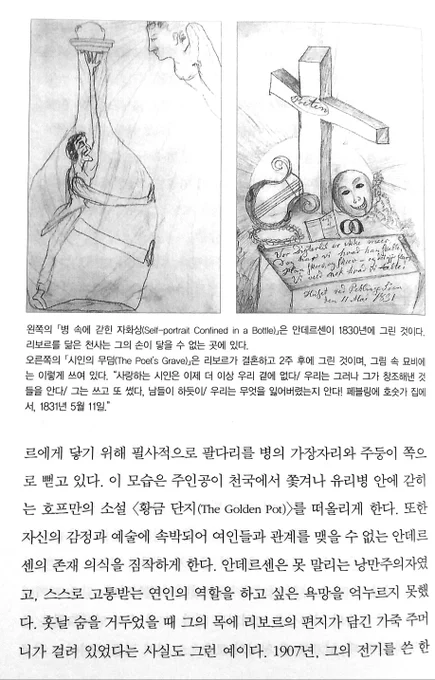 Poeten
Vor Digter han er ikke meer
den 11 Mai 1831
왼쪽의 「병 속에 갇힌 자화상(Self-portrait Confined in a Bottle)」은 안데르센이 1830년에 그린 것이다.
리보르를 닮은 천사는 그의 손이 닿을 수 없는 곳에 있다.
오른쪽의 「시인의 무덤(The Poet's Grave)」은 리보르가 결혼하고 2주 후에 그린 것이며, 그림 속 묘비에
는 이렇게 쓰여 있다. "사랑하는 시인은 이제 더 이상 우리 곁에 없다/ 우리는 그러나 그가 창조해낸 것
들을 안다/ 그는 쓰고 또 썼다, 남들이 하듯이/ 우리는 무엇을 잃어버렸는지 안다! 페블링에 호숫가 집에
서, 1831년 5월 11일."
르에게 닿기 위해 필사적으로 팔다리를 병의 가장자리와 주둥이 쪽으
로 뻗고 있다. 이 모습은 주인공이 천국에서 쫓겨나 유리병 안에 갇히
는 호프만의 소설 〈황금 단지(The Golden Pot)〉를 떠올리게 한다. 또한
자신의 감정과 예술에 속박되어 여인들과 관계를 맺을 수 없는 안데르
센의 존재 의식을 짐작하게 한다. 안데르센은 못 말리는 낭만주의자였
고, 스스로 고통받는 연인의 역할을 하고 싶은 욕망을 억누르지 못했
다. 훗날 숨을 거두었을 때 그의 목에 리보르의 편지가 담긴 가죽 주머
니가 걸려 있었다는 사실도 그런 예이다. 1907년, 그의 전기를 쓴 한